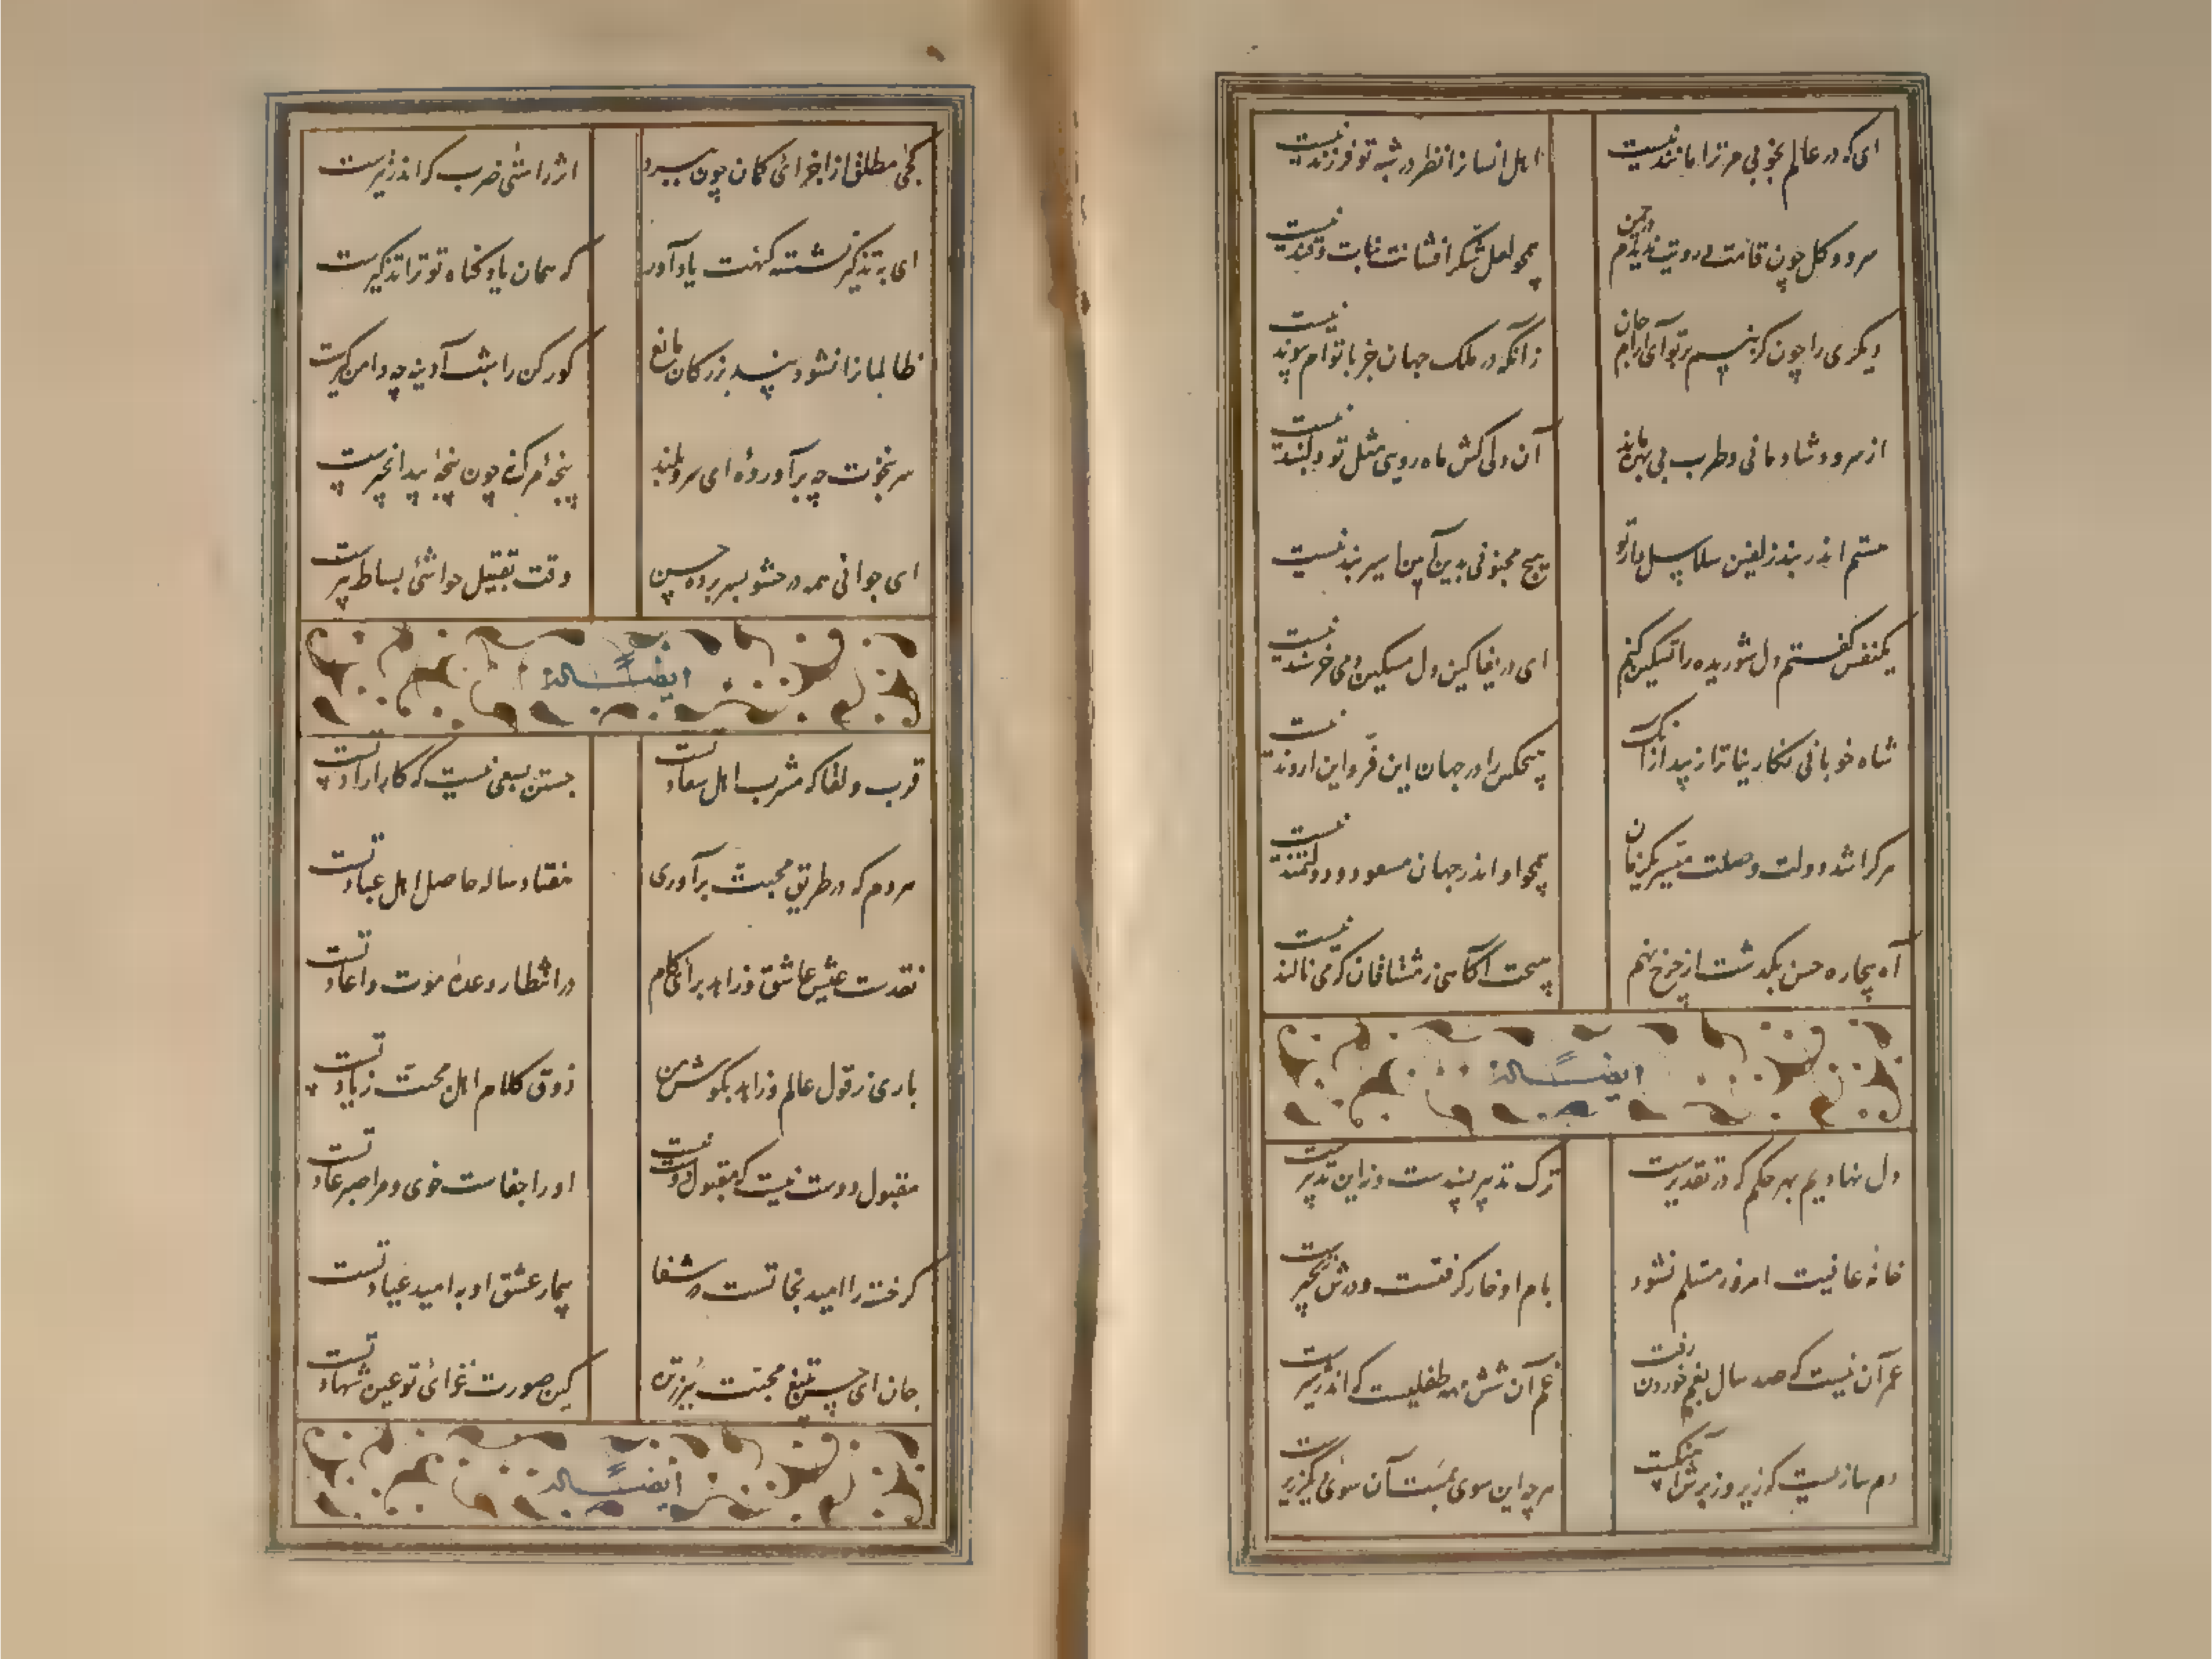 ای که در عالم بخوبی مر ترا مانند نیست
اهل انسان را نظر در شبه تو فرزند نیست
سرو و گل چون قامت و رویت ندیدم در چمن
همچو لعل شکر افشانت نبات و قند نیست
دیگری را چون گزینم بر تو ای آرام جان
زانکه در ملک جهان جز با توام پیوند نیست
از سرود شادمانی و طرب بی بهره ماند
آن دلی کش ماه رویی مثل تو دلبند نیست
هستم اندر بند زلفین سلاسل وار تو
هیچ مجنونی بدین آیین اسیر بند نیست
یکنفس گفتم دل شوریده را تسکین کنم
ای دریغا کین دل مسکین دمی خرسند نیست
شاه خوبانی نگارینا ترا زیبد از آنک
هیچکس را در جهان این فر و این اروند نیست
هر کرا شد دولت وصلت میسر یکزمان
همچو او اندر جهان مسعود و دولتمند نیست
آه بیچاره حسن بگذشت از چرخ نهم
هیچت آگاهی ز مشتاقان که می نالند نیست
ایضاً له
دل نهادیم بهر حکم که در تقدیرست
ترک تدبیر پسندست و زاین تدبیر نیست
خانه عافیت امروز مسلم نشود
بام او خار گرفتست و درش زنجیرست
عمر آن نیست که صد سال بغم خوردن رفت
عمر آن شش مهه طفلیست که اندر شیرست
هر چه این سوی بمست آن سوی
کجی مطلق از اجرای کمان چون ببرد
اثر راستی ضرب که اندر تیرست
ای به تذکیر نشسته گنهت یاد آور
که همان یاد گناه تو ترا تذکیرست
ظالمان را نشود پند بزرگان مانع
گورکن را شب آدینه چه دامن گیرست
سر بنخوت چه برآورده ای سرو بلند
پنجه مرگ نه چون پنجه بید انجیرست
ای جوانی همه در حشو بسر برده حسن
وقت تقبیل حواشی بساط پیرست
ایضاً له
قرب و لقا که مشرب اهل سعادتست
جستن بسعی نیست که کار ارادتست
هر دم که در طریق محبت برآوری
هفتاد ساله حاصل اهل عبادتست
نقدست عیش عاشق و زاهد برای کام
در انتظار وعده موت و اعادتست
باری ز قول عالم و زاهد بگوش من
ذوق کلام اهل محبت زیادتست
مقبول دوست نیست که مقبول دوست نیست
او را جفاست خوی و مرا صبر عادتست
گر خسته را امید نجاتست در شفا
بیمار عشق او به امید عیادتست
جان ای حسن بتیغ محبت بریز زانک
کین صورت غزای تو عین شهادتست
ایضاً له